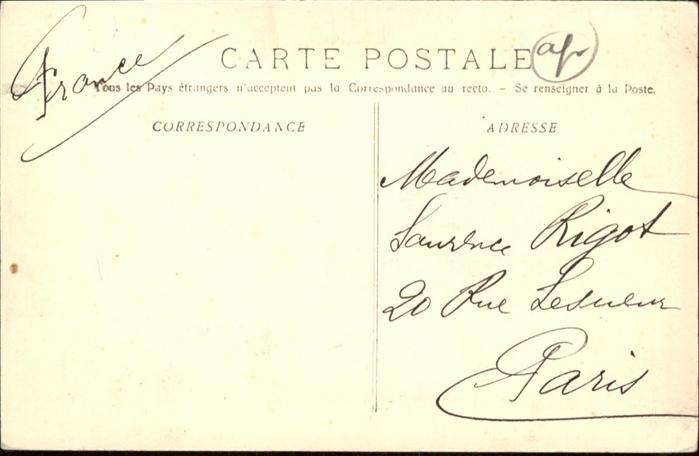 France
CARTE POSTALE
Tous les Pays étrangers n'acceptent pas la Correspondance au recto. - Se renseigner à la Poste.
CORRESPONDANCE
ADRESSE
Mademoiselle
Laurence Rigot
20 Rue Lesueur
Paris